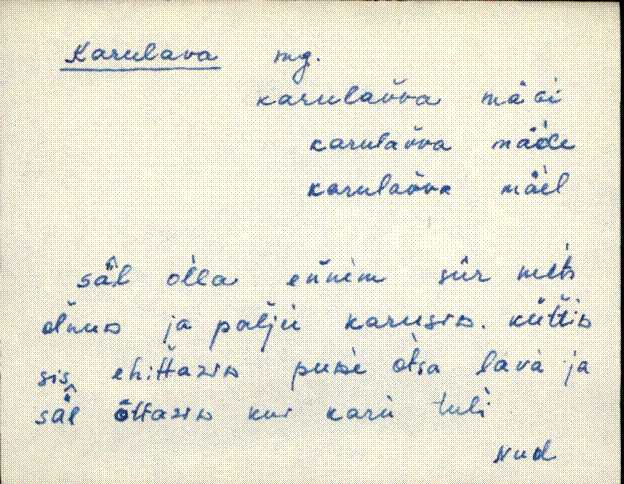 Karulava mg.
karulavva mäGi
karulavva mäèle
karulavva mäèl
säl olla ennèm sūr mèts
olnuD ja paljù karusìD. küttìD
sis, ehittasìD puDè otsa lavà ja
säl ottasìD kui karù tulì
Nud